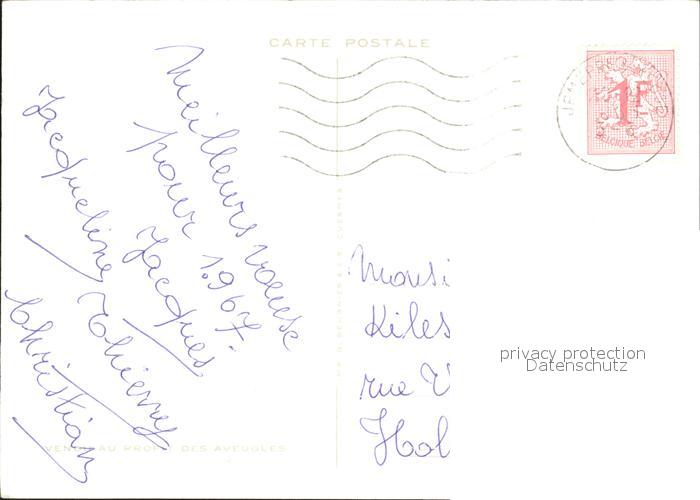 CARTE POSTALE
Meilleurs voeuse
pour 1.967.
Jacques
Jacqueline, Thierry
Christian
1F
BELGIQUE-BELGIE
Mousi
Kiles
rue V
Hol
privacy protection
Datenschutz
VENDU AU PROFIT DES AVEUGLES